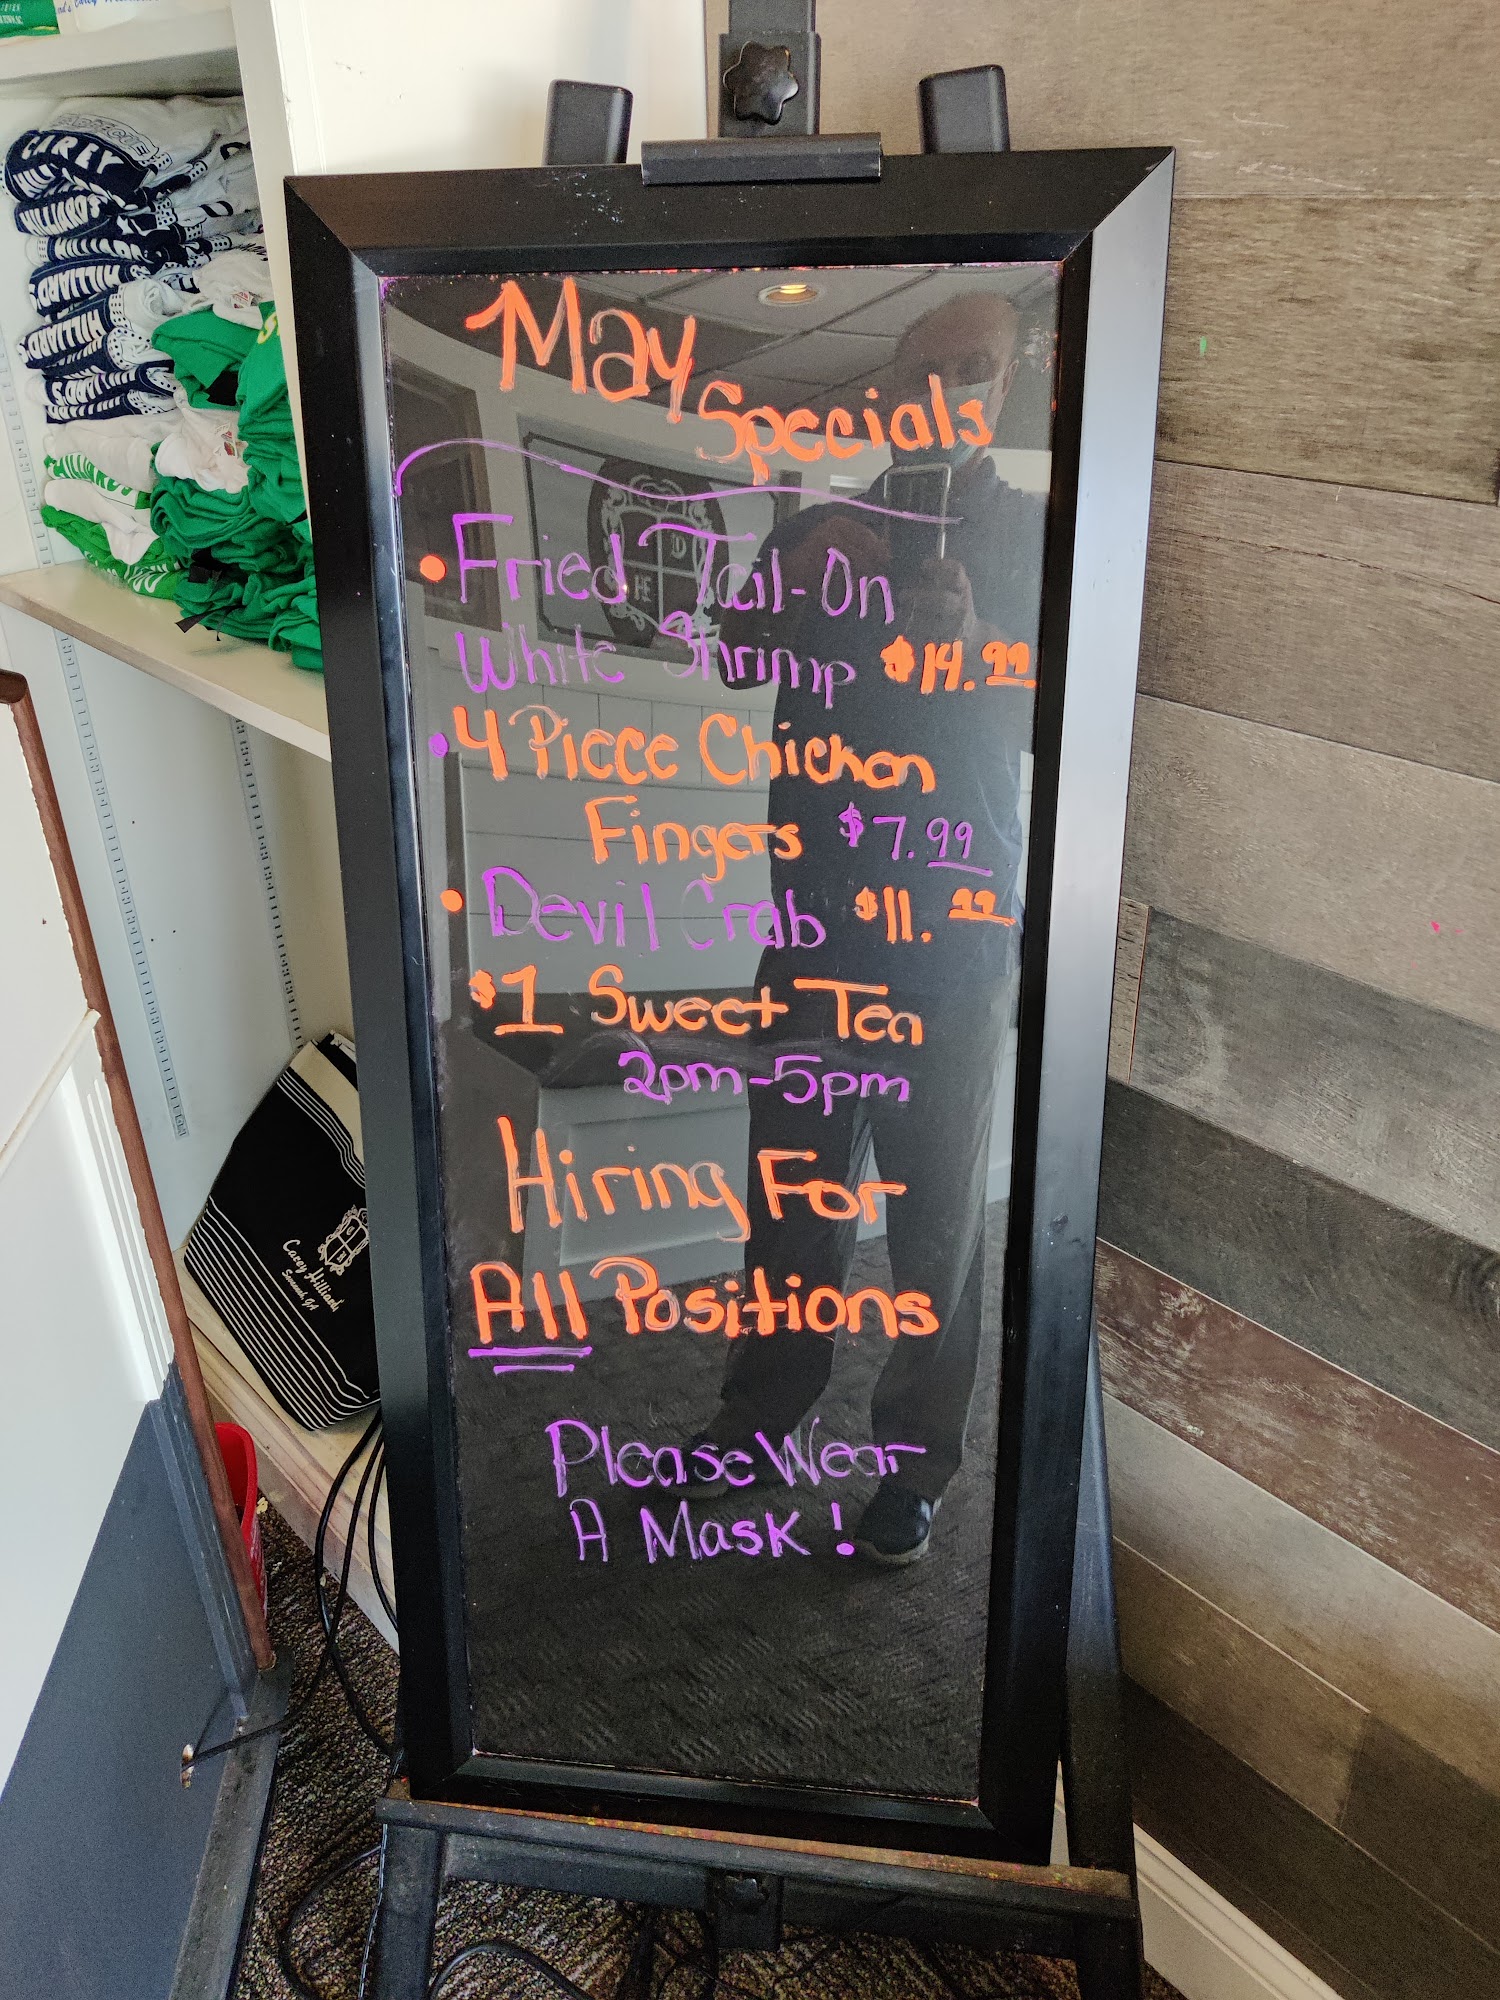 May
Specials
• Fried Tail-On
White Shrimp $14.99
• 4 Piece Chicken
Fingers $7.99
• Devil Crab $11.99
$1 Sweet Tea
2pm-5pm
Hiring For
All Positions
Please Wear
A Mask!
CAREY
HILLIARD'S
HILLIARD'S
HILLIARD'S
Carey Hilliard
Savannah, GA